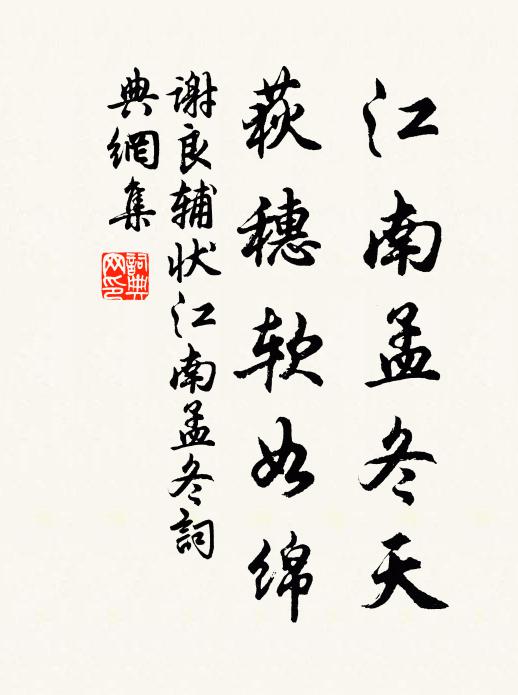 江南孟冬天
荻穗软如绵
谢良辅状江南孟冬詞
典網集
詞典网印